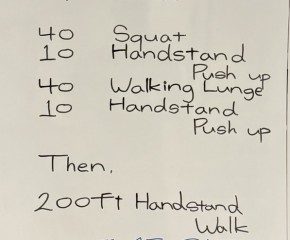 40 Squat
10 Handstand
Push up
40 Walking Lunge
10 Handstand
Push up
Then,
200Ft Handstand
Walk